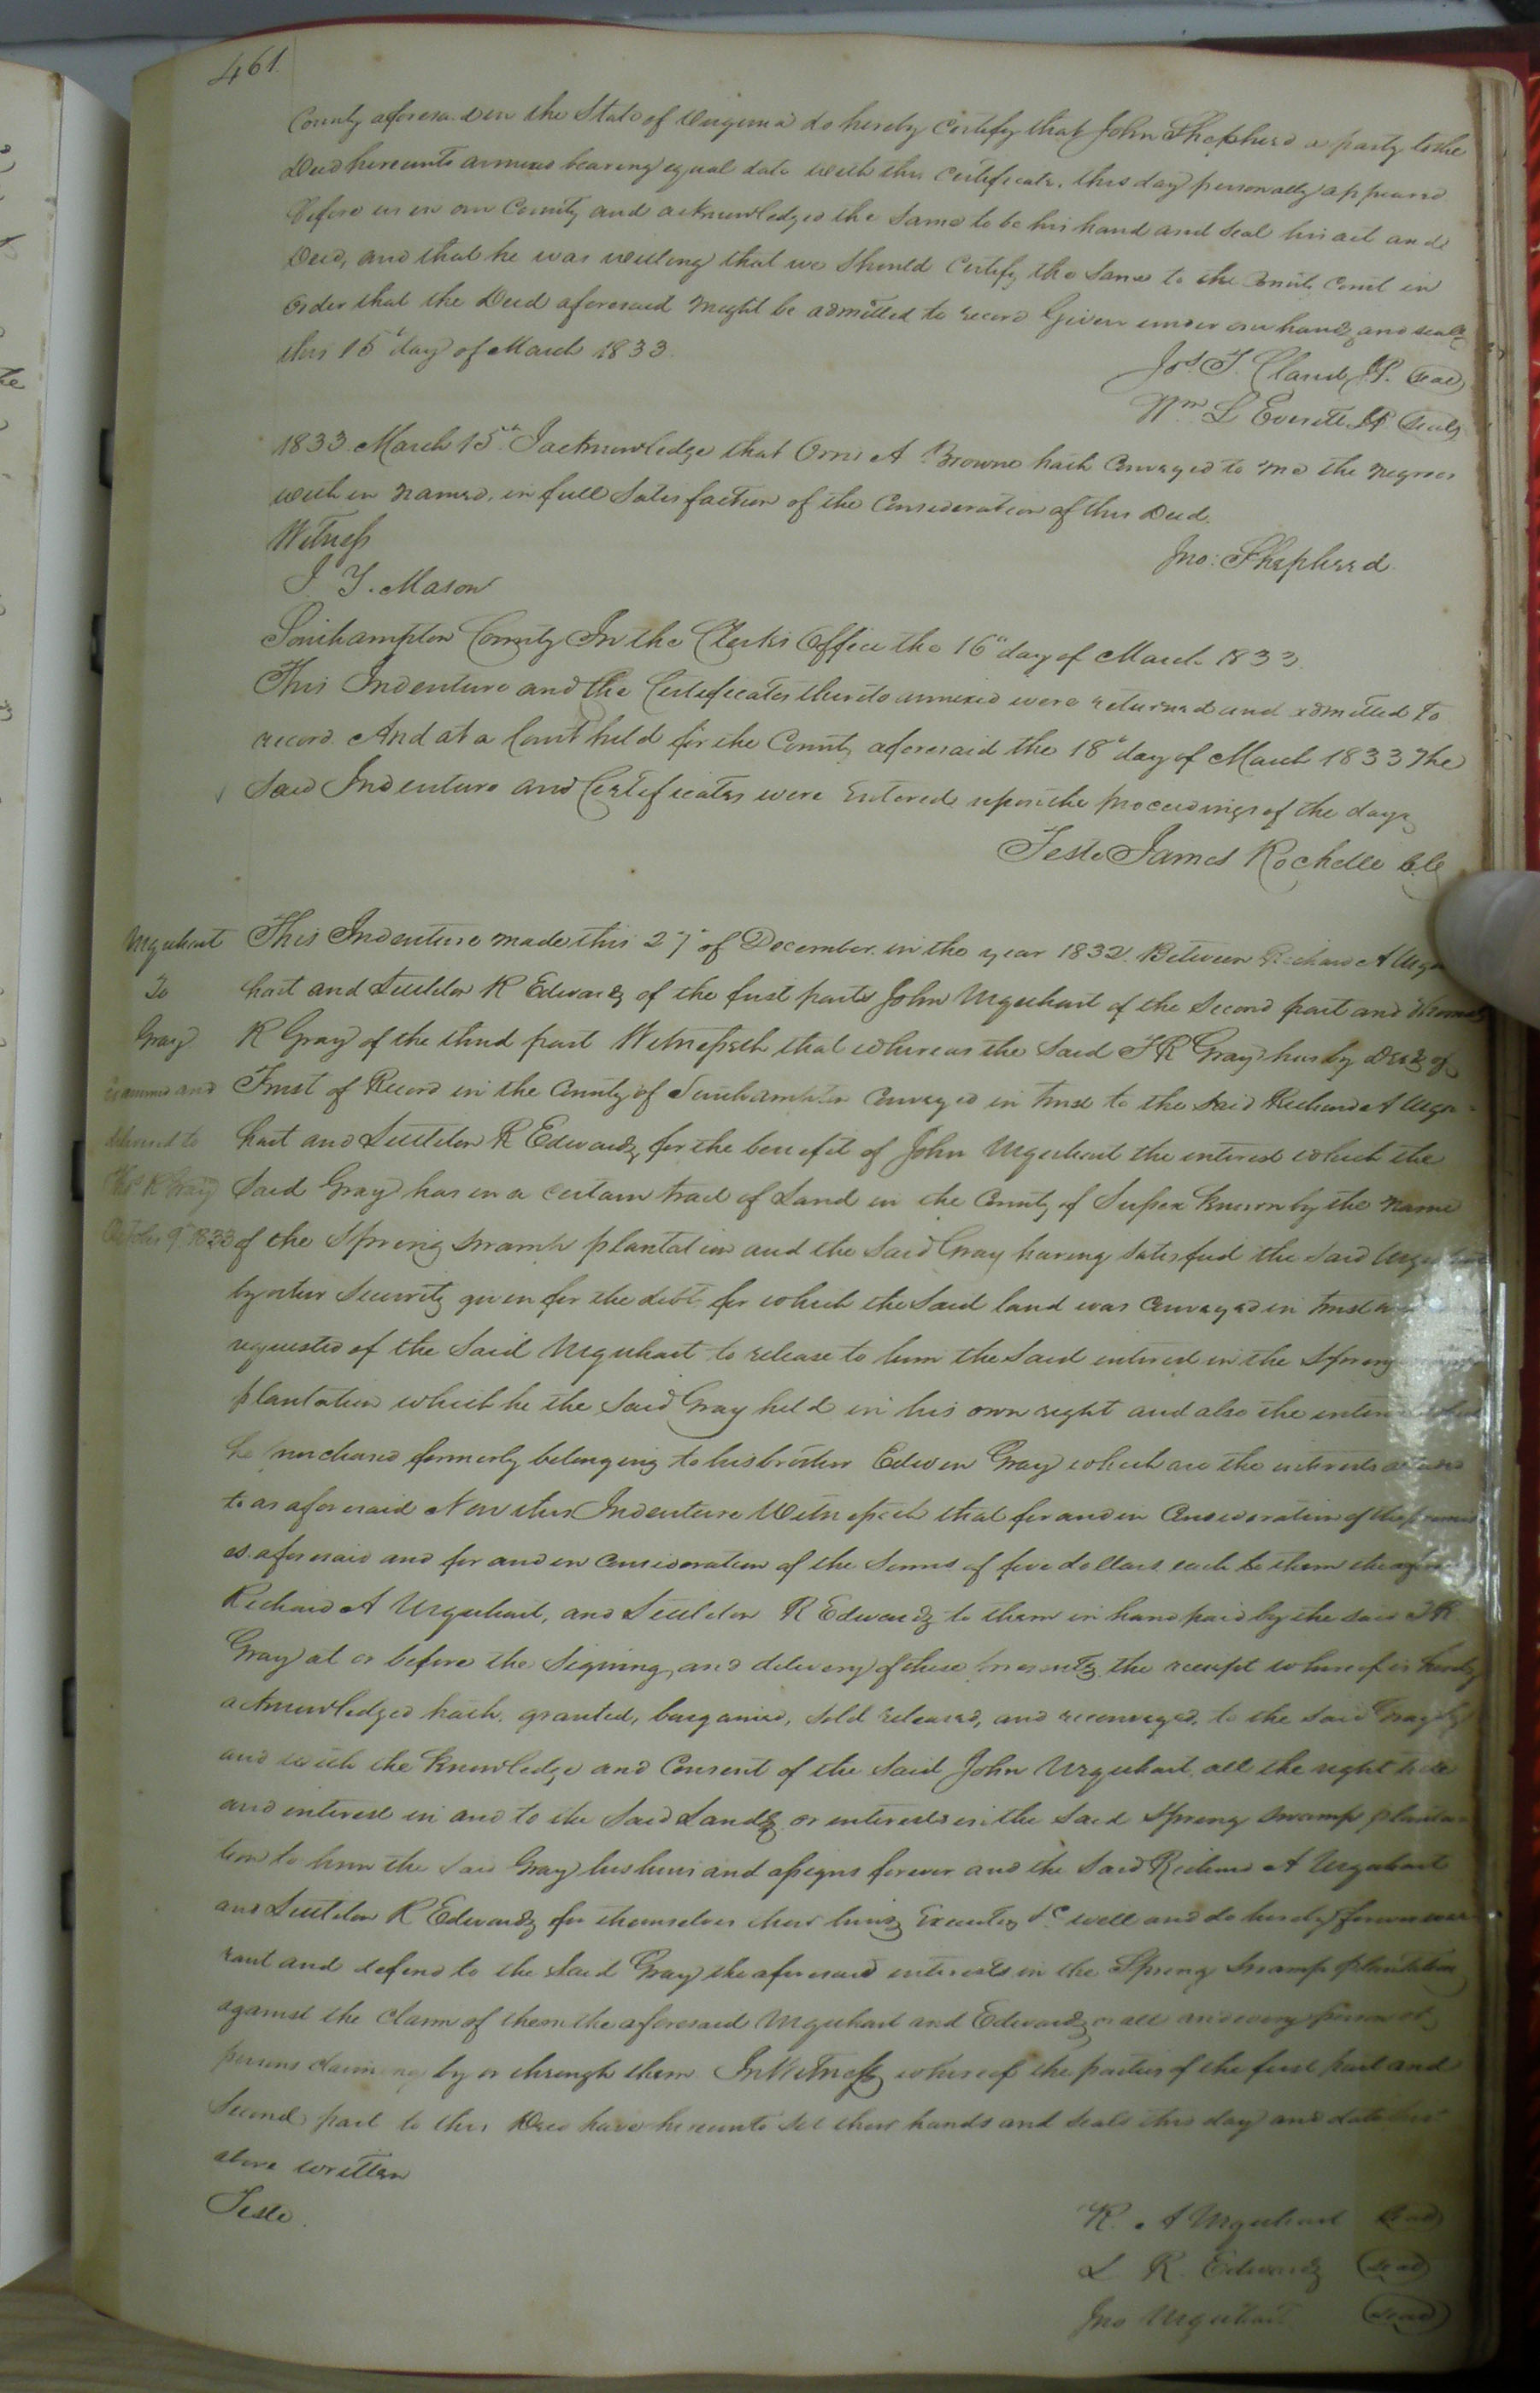 461.
County aforesaid in the State of Virginia do hereby Certify that John Shepherd a party to the
Deed hereunto annexed bearing equal date with this Certificate, this day personally appeared
before us in our County and acknowledged the same to be his hand and seal his act and
Deed, and that he was willing that we should Certify the same to the County Court in
order that the Deed aforesaid might be admitted to record Given under our hands and seals
this 15th day of March 1833.
Jos. T. Claud JP. Seal
Wm L Everitt JP Seal
1833 March 15th I acknowledge that Orris A Browne hath Conveyed to me the negroes
within named, in full Satisfaction of the Consideration of this Deed.
Witness
Jno: Shepherd.
J. Y. Mason
Southampton County In the Clerks Office the 16th day of March 1833.
This Indenture and the Certificates thereto annexed were returned and admitted to
record. And at a Court held for the County aforesaid the 18th day of March 1833 The
said Indenture and Certificates were Entered upon the proceedings of the day
Teste James Rochelle Clk
Urquhart
To
Gray
Examined and
delivered to
Thos R Gray
October 9th 1833
This Indenture made this 27th of December in the year 1832. Between Richard A Urqu
hart and Littleton R Edwards of the first part John Urquhart of the Second part and Thomas
R Gray of the third part Witnesseth that whereas the said T R Gray has by Deed of
Trust of Record in the County of Southampton Conveyed in trust to the said Richard A Urqu-
hart and Littleton R Edwards for the benefit of John Urquhart the interest which the
said Gray has in a certain tract of Land in the County of Sussex known by the name
of the Spring Swamp plantation and the said Gray having satisfied the said Urquhart
by other Security given for the debt for which the said land was Conveyed in trust
requested of the said Urquhart to release to him the said interest in the Spring
plantation which he the said Gray held in his own right and also the interest
he purchased formerly belonging to his brother Edwin Gray which are the interests
to as aforesaid Now this Indenture Witnesseth that for and in Consideration of the premis
es aforesaid and for and in consideration of the sums of five dollars each to them the
Richard A Urquhart, and Littleton R Edwards to them in hand paid by the said T R
Gray at or before the signing and delivery of these presents, the receipt whereof is hereby
acknowledged hath, granted, bargained, sold released, and reconveyed, to the said Gray by
and with the knowledge and Consent of the said John Urquhart, all the right title
and interest in and to the said Lands or interests in the said Spring Swamp planta-
tion to him the said Gray his heirs and assigns forever and the said Richard A Urquhart
and Littleton R Edwards for themselves their heirs Executors &c will and do hereby forever war
rant and defend to the said Gray the aforesaid interests in the Spring Swamp plantation
against the claim of them the aforesaid Urquhart and Edwards or all and every person or
persons claiming by or through them. In Witness whereof the parties of the first part and
Second part to this Deed have hereunto set their hands and seals this day and date
above written
Teste.
R. A Urquhart Seal
L R. Edwards Seal
Jno Urquhart Seal